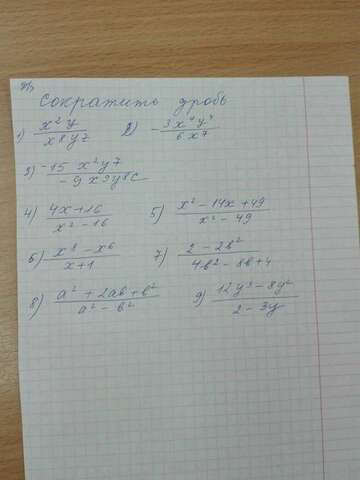 Сократить дробь
1) x²y / x8y7 2) - 3x⁴y³ / 6x7
3) -15 x²y7 / -9x9y8c
4) 4x+16 / x²-16 5) x²-14x+49 / x²-49
6) x⁸-x⁶ / x+1 7) 2-2b² / 4b²-8b+4
8) a²+2ab+b² / a²-b² 9) 12y³-8y² / 2-3y